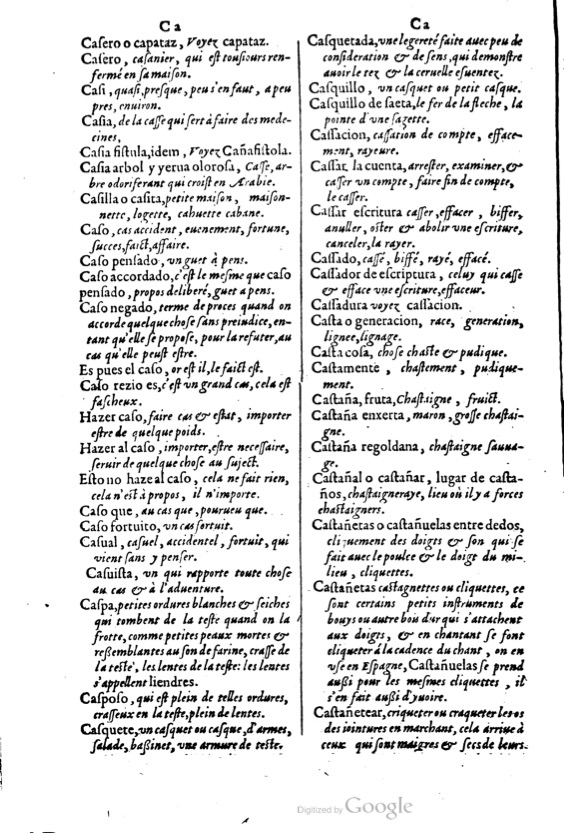 Ca
Casero o capataz, Voyez capataz.
Casero, casanier, qui est tousiours ren-
fermé en sa maison.
Casi, quasi, presque, peu s'en faut, a peu
pres, enuiron.
Casia, de la casse qui sert à faire des mede-
cines,
Casia fistula, idem, Voyez Cañafistola.
Casia arbol y yerua olorosa, Casse, ar-
bre odoriferant qui croist en Arabie.
Casilla o casita, petite maison, maison-
nette, logette, cahuette cabane.
Caso, cas accident, euenement, fortune,
succes, faict, affaire.
Caso pensado, vn guet à pens.
Caso accordado, c'est le mesme que caso
pensado, propos deliberé, guet a pens.
Caso negado, terme de proces quand on
accorde quelque chose sans preiudice, en-
tant qu'elle se propose, pour la refuter, au
cas qu'elle peust estre.
Es pues el caso, or est il, le faict est.
Caso rezio es, c'est vn grand cas, cela est
fascheux.
Hazer caso, faire cas & estat, importer
estre de quelque poids.
Hazer al caso, importer, estre necessaire,
seruir de quelque chose au suject.
Esto no haze al caso, cela ne fait rien,
cela n'est à propos, il n'importe.
Caso que, au cas que, pourueu que.
Caso fortuito, vn cas fortuit.
Casual, casuel, accidentel, fortuit, qui
vient sans y penser.
Casuista, vn qui rapporte toute chose
au cas & à l'aduenture.
Caspa, petites ordures blanches & seiches
qui tombent de la teste quand on la
frotte, comme petites peaux mortes &
reßemblantes au son de farine, crasse de
la teste, les lentes de la teste: les lentes
s'appellent liendres.
Casposo, qui est plein de telles ordures,
crasseux en la teste, plein de lentes.
Casquete, vn casquet ou casque, d'armes,
salade, baßinet, vne armure de teste.
Ca
Casquetada, vne legereté faite auec peu de
consideration & de sens, qui demonstre
auoir le tez & la ceruelle esuentez.
Casquillo, vn casquet ou petit casque.
Casquillo de saeta, le fer de la fleche, la
pointe d'vne sagette.
Cassacion, cassation de compte, efface-
ment, rayeure.
Cassar la cuenta, arrester, examiner, &
casser vn compte, faire fin de compte,
le casser.
Cassar escritura casser, effacer, biffer,
anuller, oster & abolir vne escriture,
canceler, la rayer.
Cassado, cassé, biffé, rayé, effacé.
Cassador de escriptura, celuy qui casse
& efface vne escriture, effaceur.
Cassadura voyez cassacion.
Casta o generacion, race, generation,
lignee, lignage.
Casta cosa, chose chaste & pudique.
Castamente, chastement, pudique-
ment.
Castaña, fruta, Chastaigne, fruict.
Castaña enxerta, maron, grosse chastai-
gne.
Castaña regoldana, chastaigne sauua-
ge.
Castañal o castañar, lugar de casta-
ños, chastaigneraye, lieu où il y a forces
chastaigners.
Castañetas o castañuelas entre dedos,
cliquement des doigts & son qui se
fait auec le poulce & le doigt du mi-
lieu, cliquettes.
Castañetas castagnettes ou cliquettes, ce
sont certains petits instruments de
bouys ou autre bois dur qui s'attachent
aux doigts, & en chantant se font
cliqueter à la cadence du chant, on en
vse en Espagne, Castañuelas se prend
außi pour les mesmes cliquettes, il
s'en fait außi d'yuoire.
Castañetear, criqueter ou craqueter les os
des iointures en marchant, cela arriue à
ceux qui sont maigres & secs de leurs.
Digitized by Google